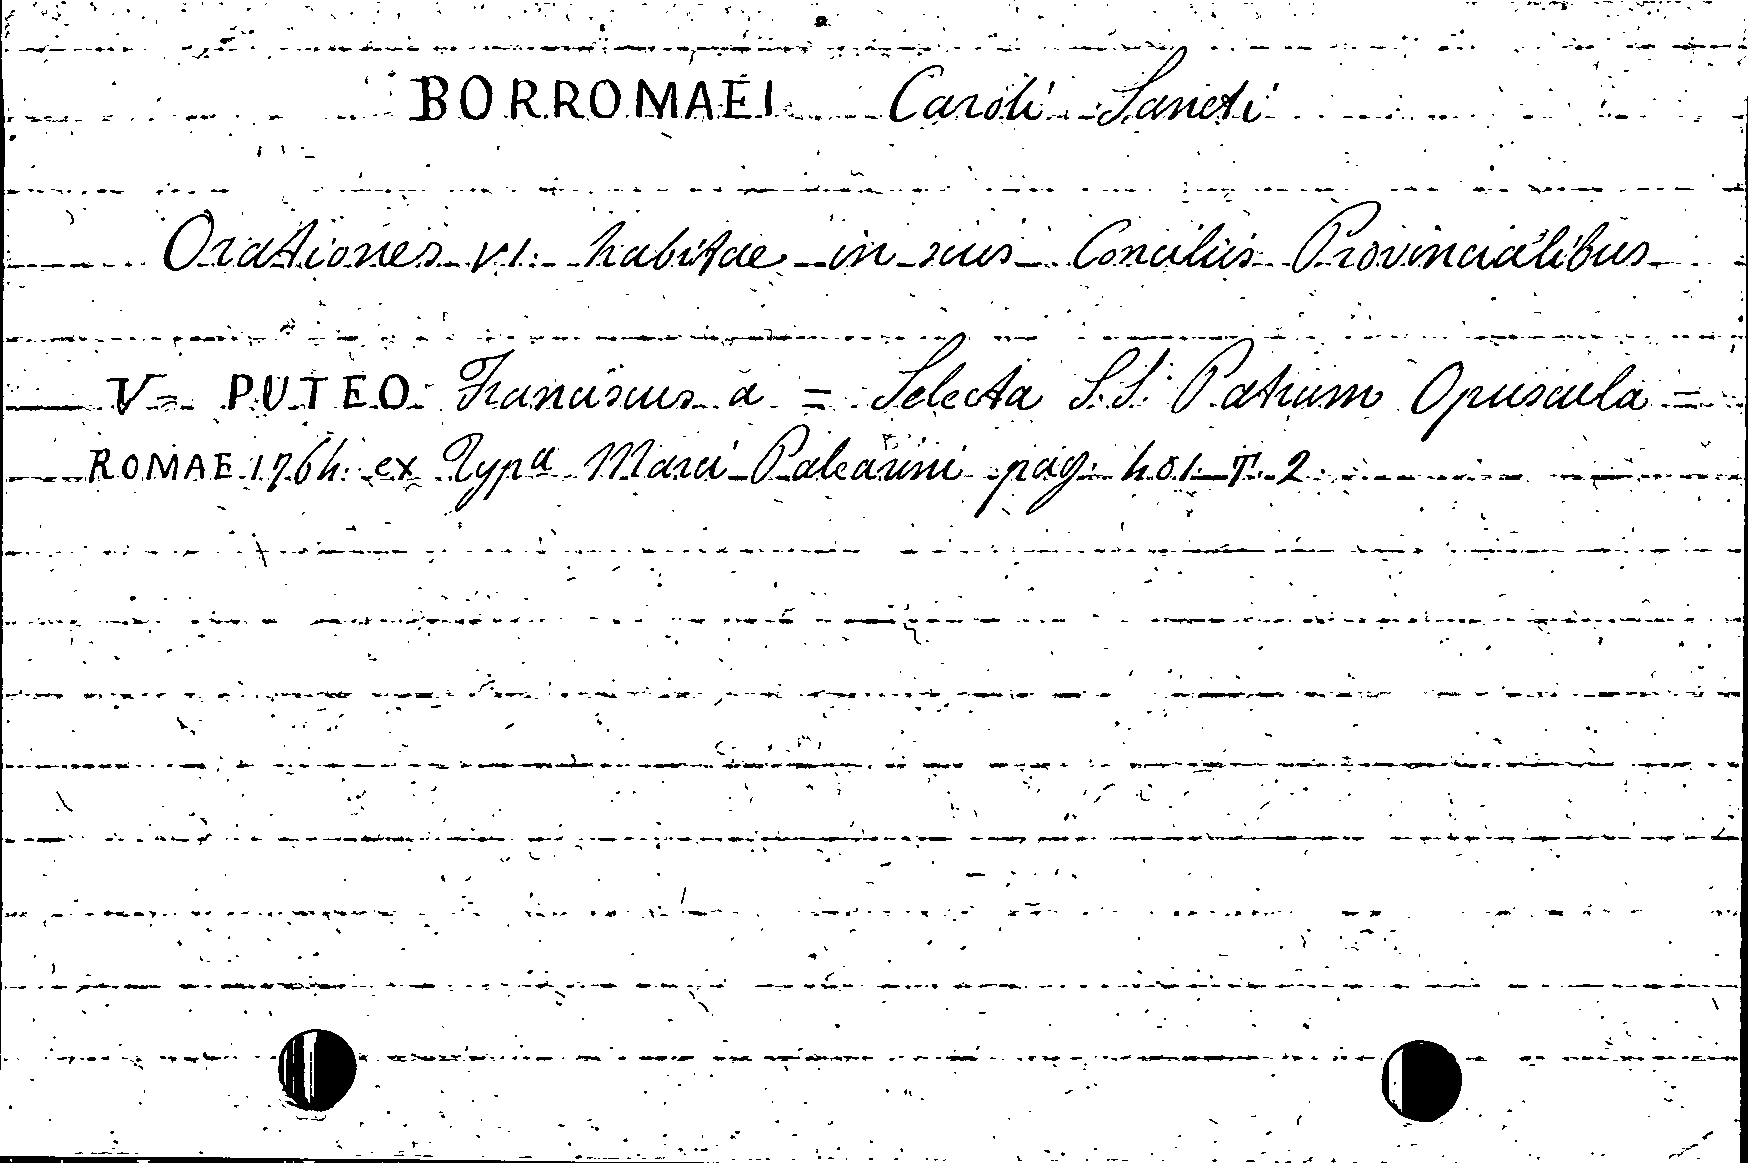 BORROMAEI Caroli Sancti
Orationes VI. habitae in suis Conciliis Provincialibus
V= PUTEO Franciscus a = Selecta S.S. Patrum Opuscula =
ROMAE 1764. ex Typa Marci Palearini pag. 401. T. 2.